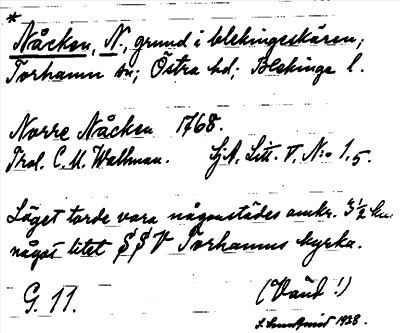 * Nåcken, N., grund i blekingeskären;
Torhamn sn; Östra hd; Blekinge l.
Norre Nåcken 1768.
Trol. C. M. Wallman. SjA. Litt. V. N:o 1.5.
Läget torde vara någonstädes omkr. 3 1/2 km
något litet S§V Torhamns kyrka.
G. 11. (Vänd!)
1938.